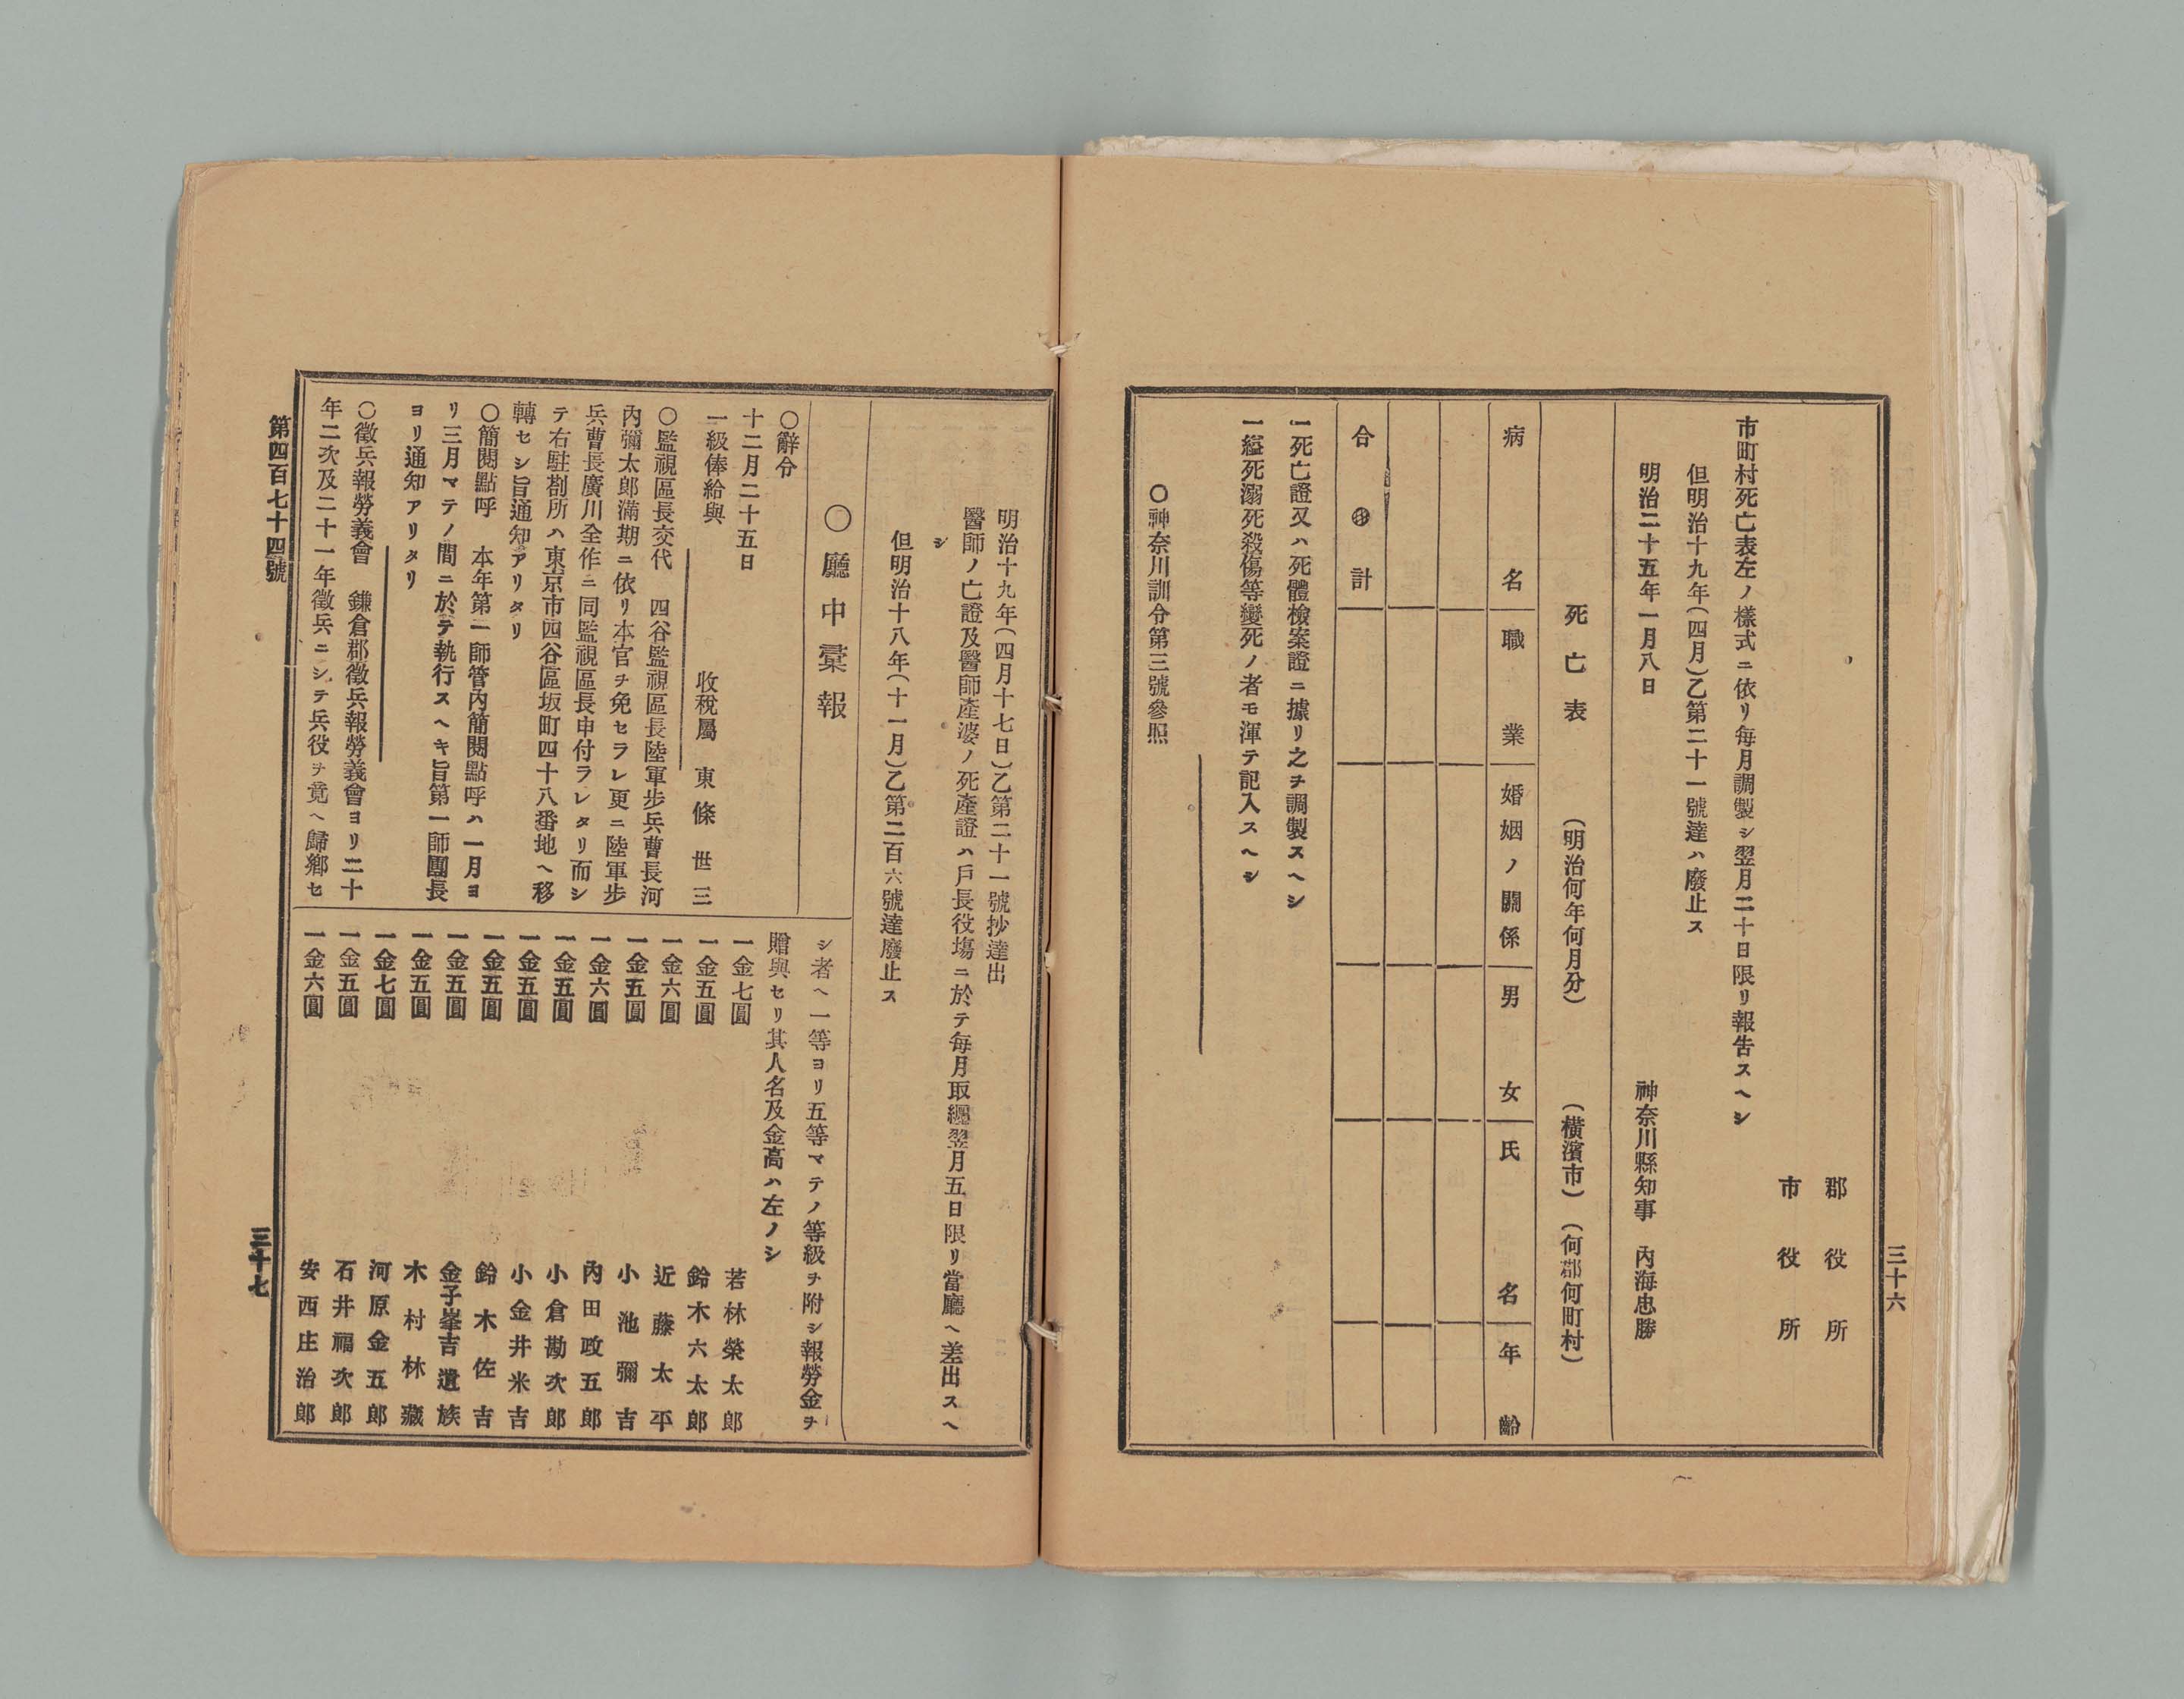 三十六
郡役所
市役所
市町村死亡表左ノ樣式ニ依リ每月調製シ翌月二十日限リ報告スヘシ
但明治十九年(四月)乙第二十一號達ハ廢止ス
明治二十五年一月八日
神奈川縣知事 內海忠勝
死亡表 (明治何年何月分) (橫濱市) (何郡何町村)
病名 職業 婚姻ノ關係 男女 氏名 年齡
合計
一死亡證又ハ死體檢案證ニ據リ之ヲ調製スヘシ
一縊死溺死殺傷等變死ノ者モ渾テ記入スヘシ
○神奈川訓令第三號參照
明治十九年(四月十七日)乙第二十一號抄達出
醫師ノ亡證及醫師產婆ノ死產證ハ戶長役塲ニ於テ每月取纒翌月五日限リ當廳ヘ差出スヘ
シ
但明治十八年(十一月)乙第二百六號達廢止ス
○廳中彙報
○辭令
十二月二十五日
二級俸給與 收稅屬 東條世三
○監視區長交代 四谷監視區長陸軍步兵曹長河
內彌太郎滿期ニ依リ本官ヲ免セラレ更ニ陸軍步
兵曹長廣川全作ニ同監視區長申付ラレタリ而シ
テ右駐剳所ハ東京市四谷區坂町四十八番地ヘ移
轉セシ旨通知アリタリ
○簡閱點呼 本年第一師管內簡閱點呼ハ一月ヨ
リ三月マテノ間ニ於テ執行スヘキ旨第一師團長
ヨリ通知アリタリ
○徵兵報勞義會 鎌倉郡徵兵報勞義會ヨリ二十
年二次及二十一年徵兵ニシテ兵役ヲ竟ヘ歸鄕セ
シ者ヘ一等ヨリ五等マテノ等級ヲ附シ報勞金ヲ
贈與セリ其人名及金高ハ左ノシ
一金七圓 若林榮太郎
一金五圓 鈴木六太郎
一金六圓 近藤太平
一金五圓 小池彌吉
一金六圓 內田政五郎
一金五圓 小倉勘次郎
一金五圓 小金井米吉
一金五圓 鈴木佐吉
一金五圓 金子峯吉遺族
一金五圓 木村林藏
一金七圓 河原金五郎
一金五圓 石井福次郎
一金六圓 安西庄治郎
第四百七十四號
三十七